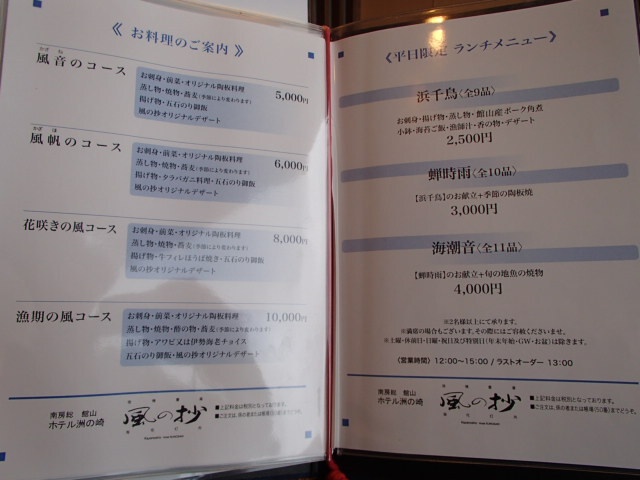 《 お料理のご案内 》
かざね
風音のコース
お刺身・前菜・オリジナル陶板料理
蒸し物・焼物・蕎麦(季節により変わります)
揚げ物・五石のり御飯
風の抄オリジナルデザート
5,000円
かざほ
風帆のコース
お刺身・前菜・オリジナル陶板料理
蒸し物・焼物・蕎麦(季節により変わります)
揚げ物・タラバガニ料理・五石のり御飯
風の抄オリジナルデザート
6,000円
花咲きの風コース
お刺身・前菜・オリジナル陶板料理
蒸し物・焼物・蕎麦(季節により変わります)
揚げ物・牛フィレほうば焼き・五石のり御飯
風の抄オリジナルデザート
8,000円
漁期の風コース
お刺身・前菜・オリジナル陶板料理
蒸し物・焼物・酢の物・蕎麦(季節により変わります)
揚げ物・アワビ又は伊勢海老チョイス
五石のり御飯・風の抄オリジナルデザート
10,000円
南房総 館山
ホテル洲の崎
風の抄
■上記料金は税別となっております。
《平日限定 ランチメニュー》
浜千鳥〈全9品〉
お刺身・揚げ物・蒸し物・館山産ポーク角煮
小鉢・海苔ご飯・漁師汁・香の物・デザート
2,500円
蝉時雨〈全10品〉
【浜千鳥】のお献立+季節の陶板焼
3,000円
海潮音〈全11品〉
【蝉時雨】のお献立+旬の地魚の焼物
4,000円
※2名様以上にて承ります。
※満席の場合もございます。その際にはご容赦くださいませ。
※土曜・休前日・日曜・祝日及び特別日(年末年始・GW・お盆)は除きます。
〈営業時間〉 12:00~15:00 / ラストオーダー 13:00
南房総 館山
ホテル洲の崎
風の抄
■上記料金は税別となっております。